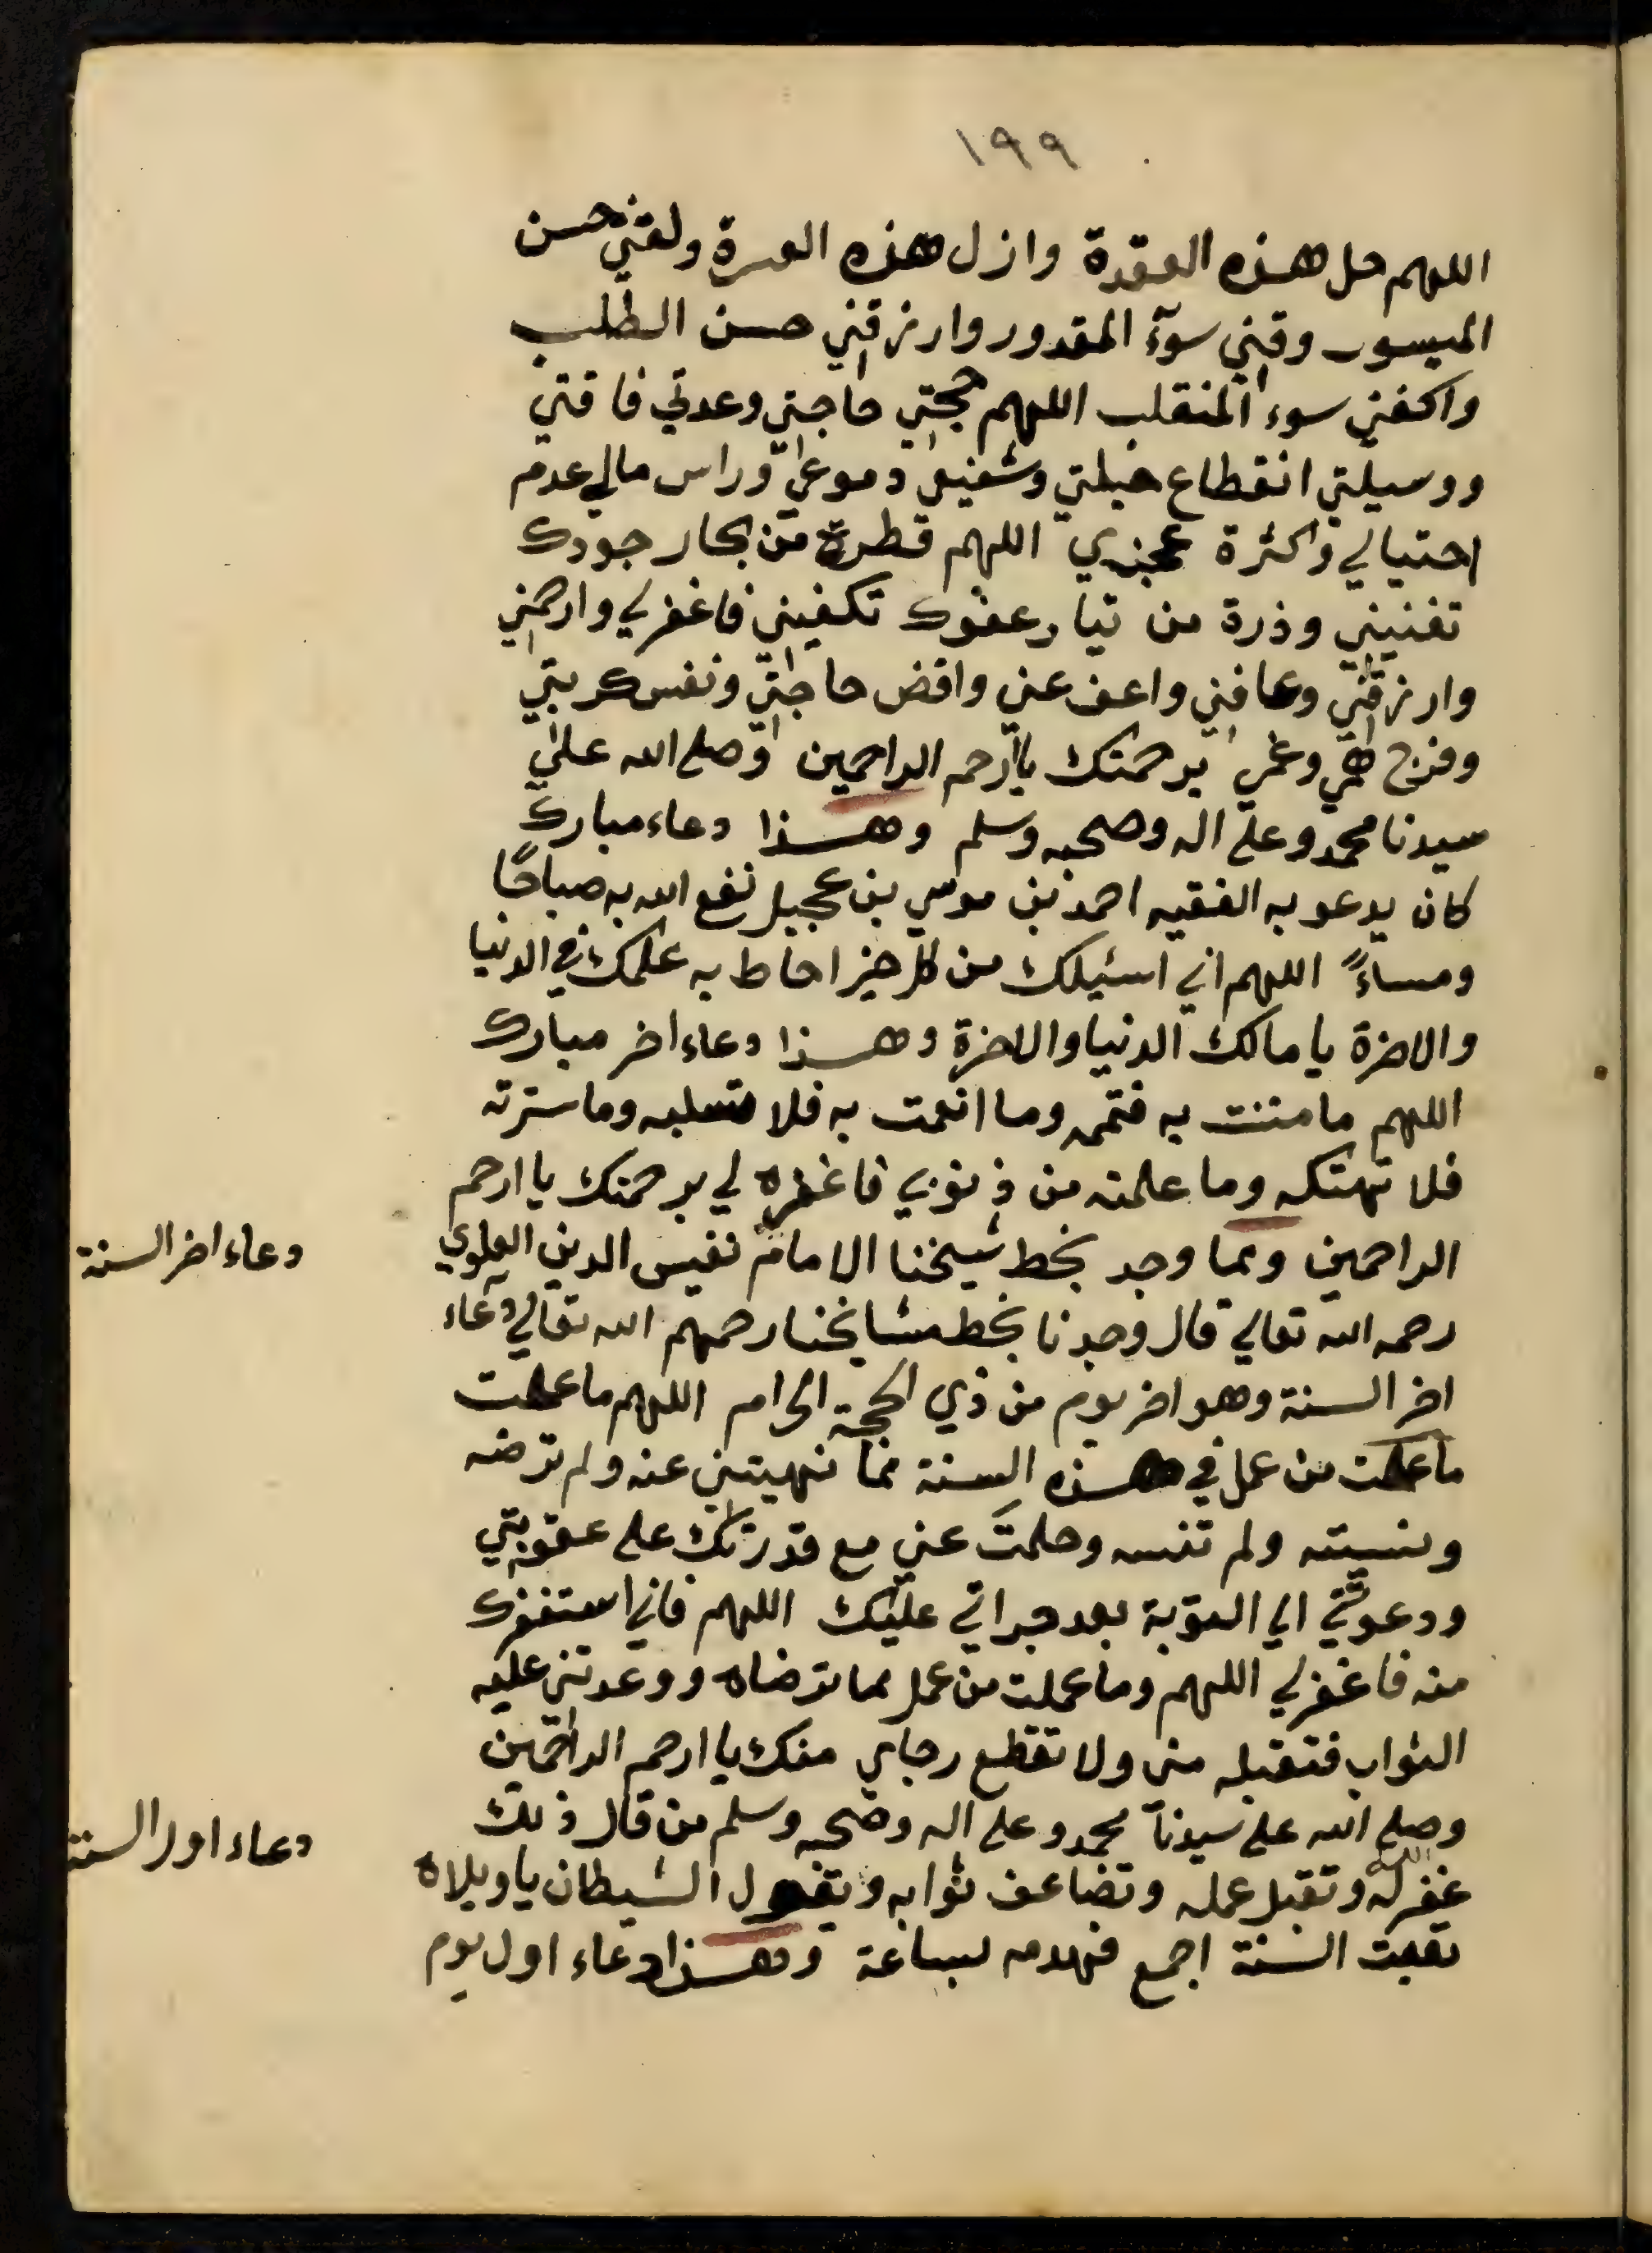 ١٩٩
اللهم حل هذه العقدة وازل هذه العسرة ولقني حسن
الميسور وقني سوء المقدور وارزقني حسن الطلب
واكفني سوء المنقلب اللهم حجتي حاجتي وعدتي فاقتي
ووسيلتي انقطاع حيلتي وشفيعي دموعي وراس مالي عدم
احتيالي وكثرة عجزي اللهم قطرة من بحار جودك
تغنيني وذرة من تيار عفوك تكفيني فاغفر لي وارحمني
وارزقني وعافني واعف عني واقض حاجتي ونفس كربتي
وفرج همي وغمي برحمتك ياارحم الراحمين وصلى الله على
سيدنا محمد وعلى اله وصحبه وسلم وهذا دعاء مبارك
كان يدعو به الفقيه احمد بن موسي بن عجيل نفع الله به صباحًا
ومساءً اللهم اني اسئلك من كل خير احاط به علمك في الدنيا
والاخرة يا مالك الدنيا والاخرة وهذا دعاء اخر مبارك
اللهم ما مننت به فتممه وما انعمت به فلا تسلبه وما سترته
فلا تهتكه وما علمته من ذنوبي فاغفره لي برحمتك يا ارحم
الراحمين ومما وجد بخط شيخنا الامام نفيس الدين العلوي
دعاء اخر السنة
رحمه الله تعالي قال وجدنا بخط مشايخنا رحمهم الله تعالي دعاء
اخر السنة وهو اخر يوم من ذي الحجة الحرام اللهم ما عملت
ما عملت من عمل في هذه السنة مما نهيتني عنه ولم ترضه
ونسيته ولم تنسه وحلمت عني مع قدرتك على عقوبتي
ودعوتني الي التوبة بعد جراتي عليك اللهم فاني استغفرك
منه فاغفر لي اللهم وما عملت من عمل مما ترضاه ووعدتني عليه
الثواب فتقبله مني ولا تقطع رجاي منك يا ارحم الراحمين
وصلى الله على سيدنا محمد وعلى اله وصحبه وسلم من قال ذلك
دعاء اول السنة
غفر الله له وتقبل عمله وتضاعف ثوابه ويقول الشيطان يا ويلاه
تعبت السنة اجمع فهدمه بساعة وهذا دعاء اول يوم